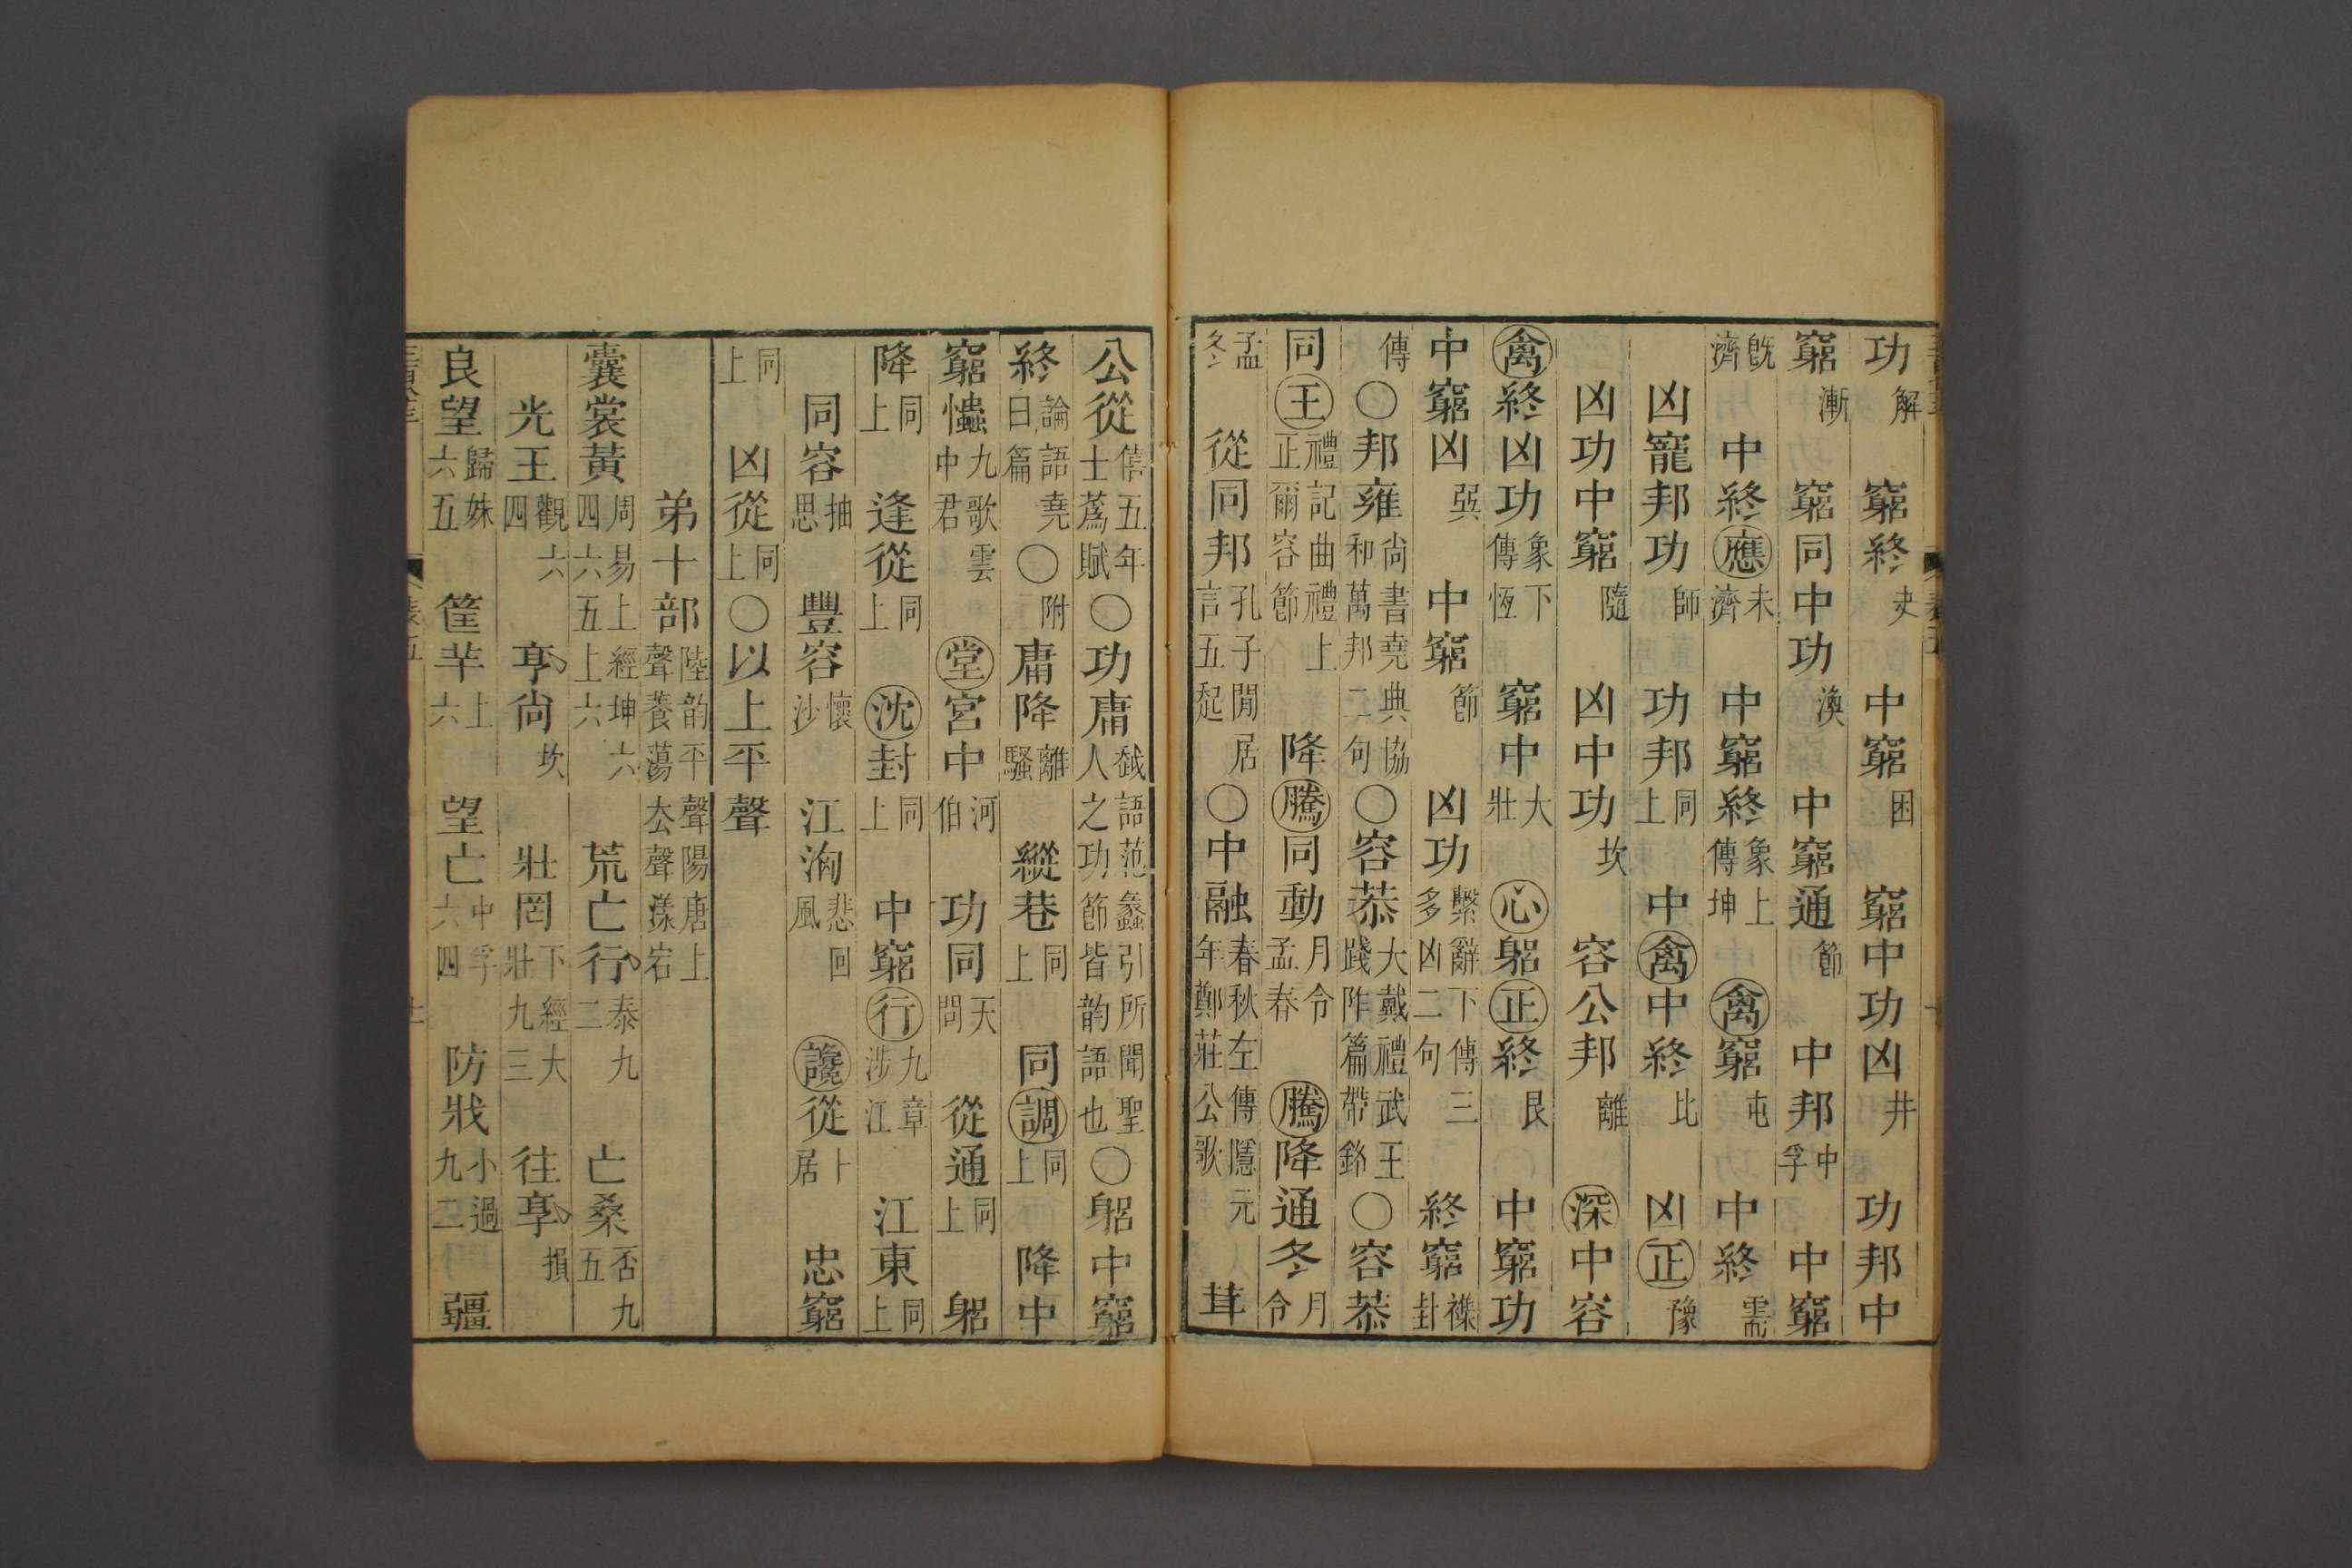 功解 窮終夬 中窮困 窮中功凶井 功邦中
窮漸 窮同中功渙 中窮通節 中邦中孚 中窮
旣濟 中終應未濟 中窮終象上傳坤 禽窮屯 中終需
凶寵邦功師 功邦同上 中禽中終比 凶正豫
凶功中窮隨 凶中功坎 容公邦離 深中容
禽終凶功象下傳恆 窮中大壯 心躳正終艮 中窮功
中窮凶巽 中窮節 凶功繫辭下傳三多凶二句 終窮襍封
傳〇邦雍尙書堯典協和萬邦二句〇容恭大戴禮武王踐阼篇帶銘〇容恭
同王禮記曲禮上正爾容節 降騰同動月令孟春 騰降通冬月令
孟冬 從同邦孔子閒居言五起〇中融春秋左傳隱元年鄭莊公歌 茸
公從僖五年士蔿賦〇功庸越語范蠡引所聞聖人之功節皆韵語也〇躳中窮
終論語堯曰篇〇附庸降離騷 縱巷同上 同調同上 降中
窮懺九歌雲中君 堂宮中河伯 功同天問 從通同上 躳
降同上 逢從同上 沈封同上 中窮行九章涉江 江東同上
同容抽思 豐容懷沙 江洶悲回風 讒從卜居 忠窮
同上 凶從同上〇以上平聲
弟十部陸韵平聲陽唐上聲養蕩去聲漾宕
囊裳黃周易上經坤六四六五上六 荒亡行泰九二 亡桑否九五
光王觀六四 亨尙坎 壯罔下經大壯九三 往亨損
良望歸妹六五 筐羊上六 望亡中孚六四 防戕小過九二 疆